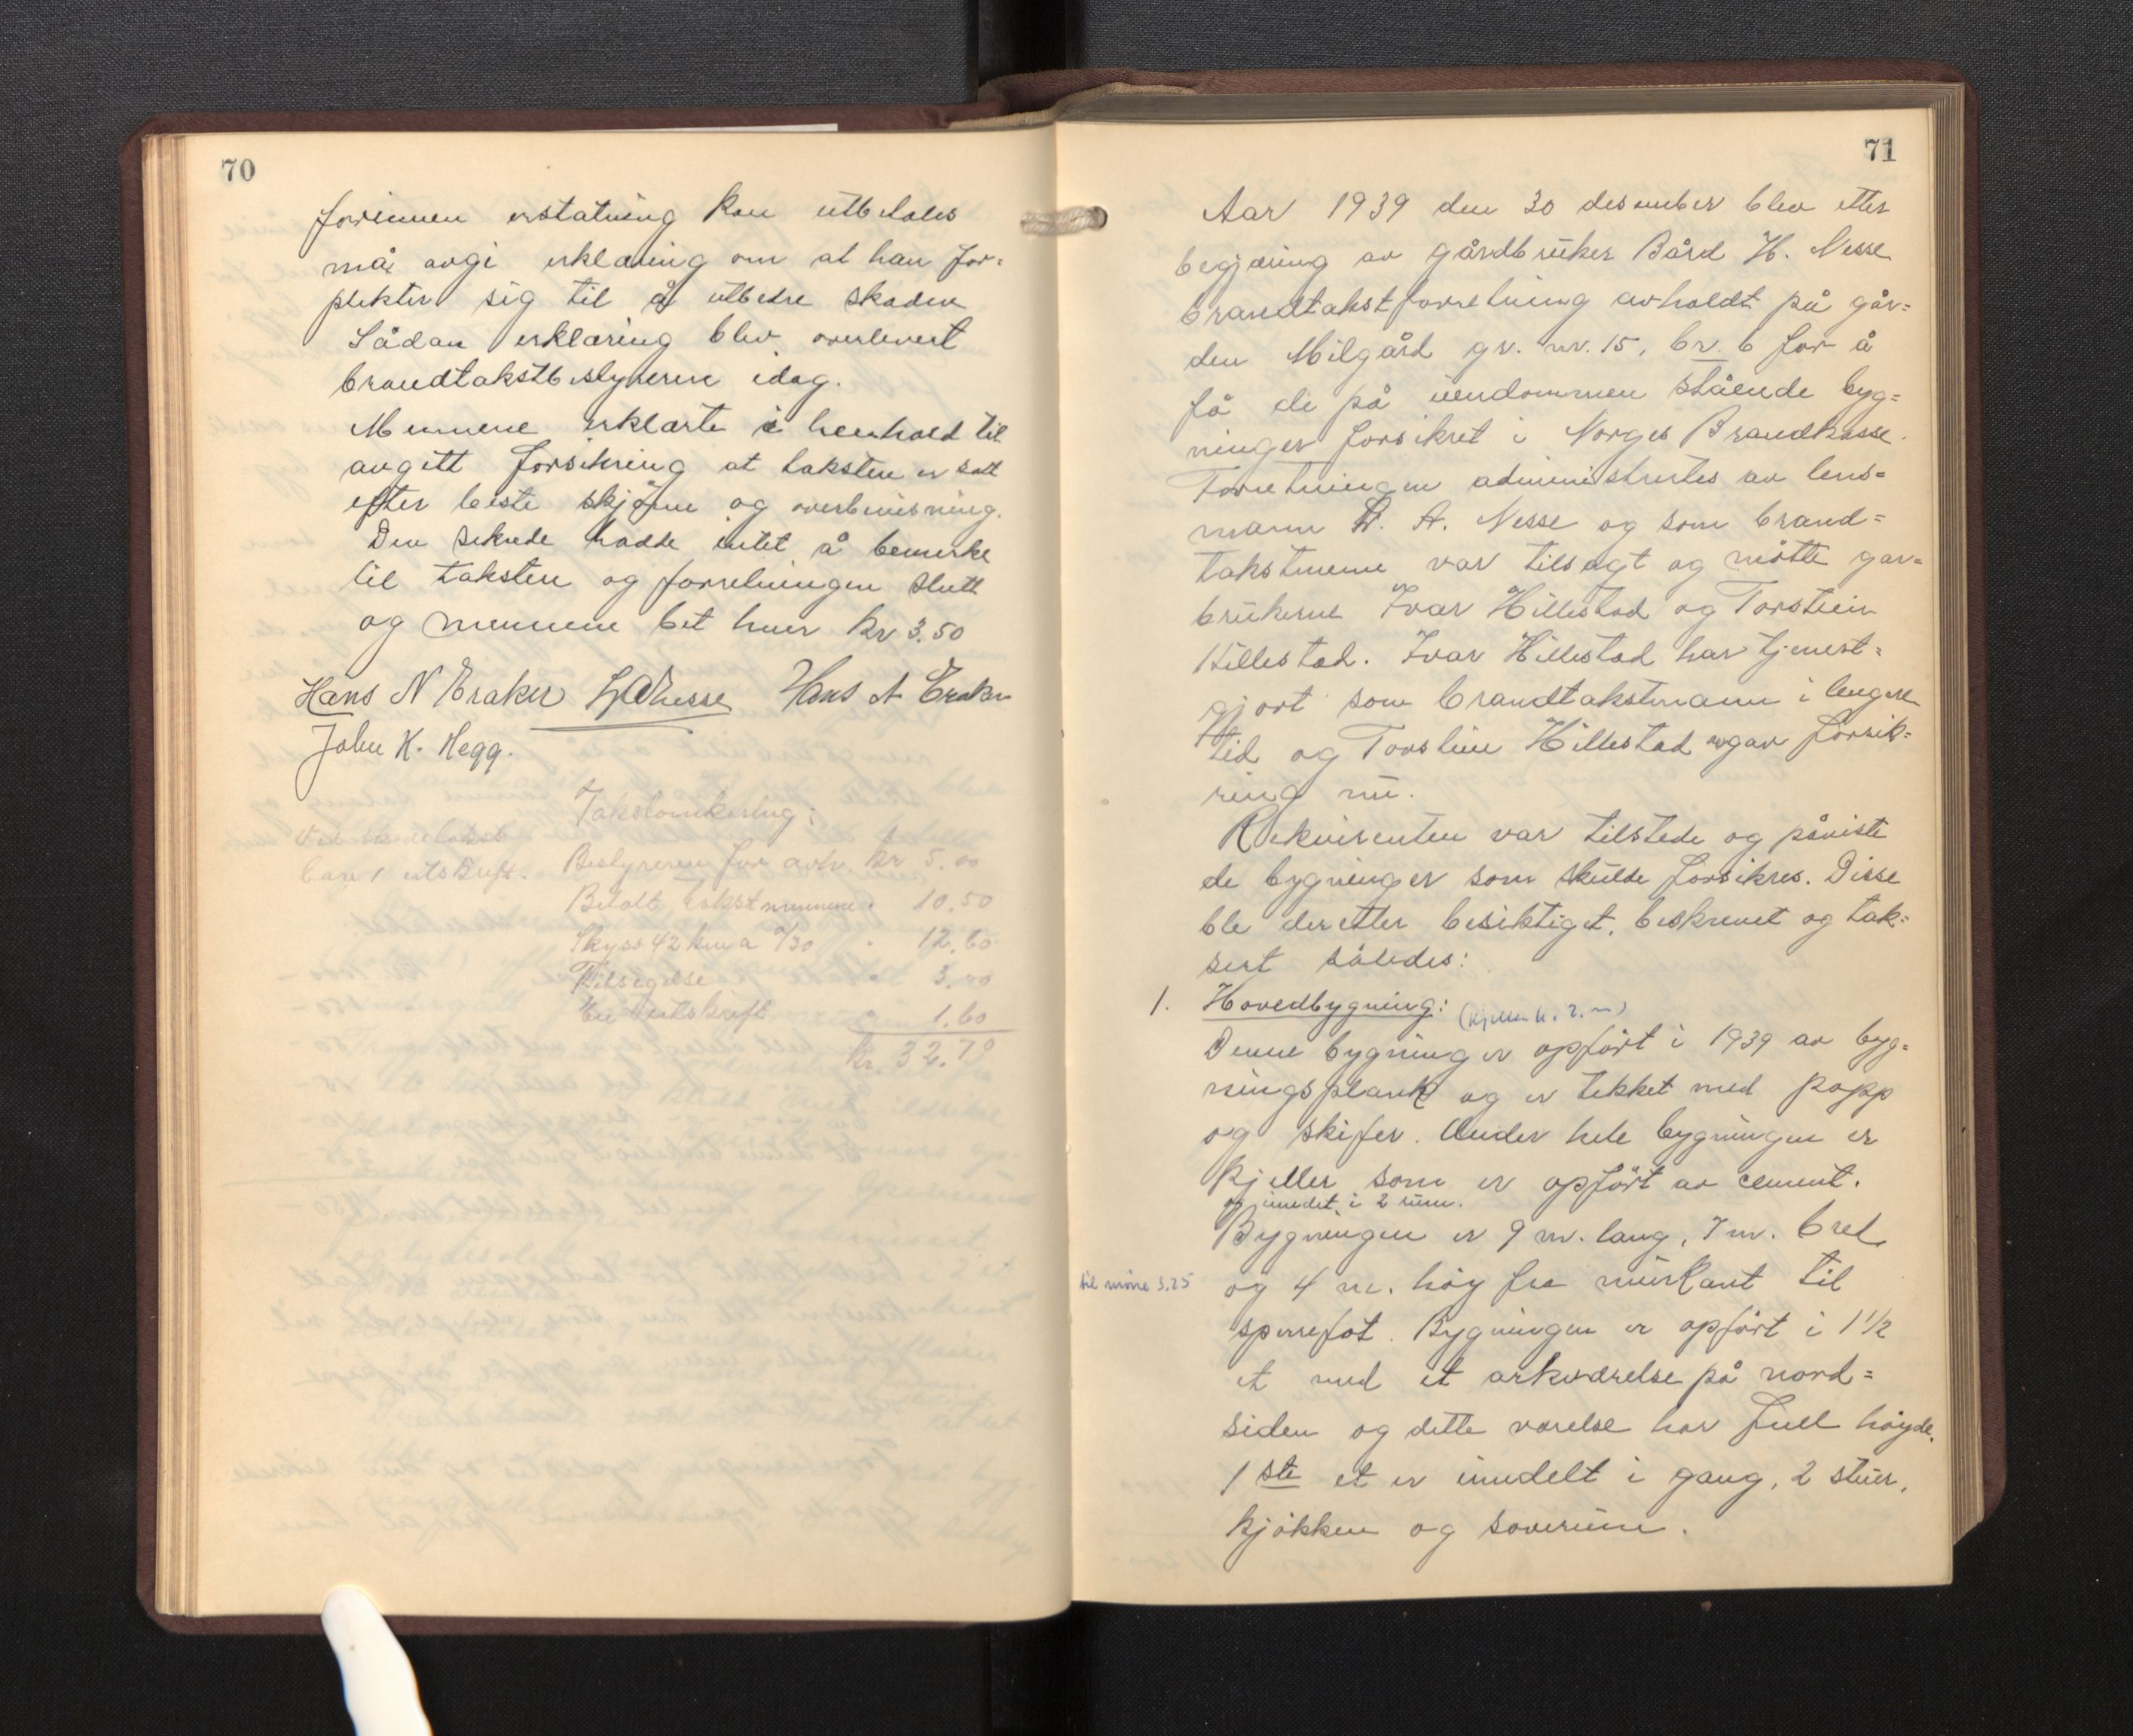 70
forinnen erstatning kan utbetales
må avgi erklæring om at han for=
plikter sig til å utbedre skaden
Sådan erklæring blev overlevert
brandtakstbestyreren idag.
Mennene erklærte i henhold til
avgitt forsikring at taksten er satt
efter beste skjønn og overbevisning.
Den sikrede hadde intet å bemerke
til taksten og forretningen slutt
og mennene bet hver kr 3.50
Hans N Eraker Hans A Eraker
John K. Hegg.
Takstomkostng:
Ved skadetakst
bare 1 utskrift.
Bestyreren for avh. Kr 5.00
Betalt takstmennene. 10.50
Skyss 42 km a 0/30 " 12.60
Tilsigelse " 3.00
En utskrift " 1.60
Kr. 32.70
71
Aar 1939 den 30 desember blev etter
begjæring av gårdbruker Bård H. Nesse
brandtakstforretning avholdt på går=
den Milgård gr. nr. 15, br. 6 for å
få de på eiendommen stående byg=
ninger forsikret i Norges Brandkasse.
Forretningen administrertes av lens=
mann A. Nesse og som brand=
takstmenn var tilsagt og møtte gar=
brukerne Ivar Hillestad og Torstein
Hillestad. Ivar Hillestad har tjenest=
gjort som brandtakstmann i lengere
tid og Torstein Hillestad avgav forsik=
ring nu.
Rekvirenten var tilstede og påviste
de bygninger som skulde forsikres. Disse
ble deretter besiktiget, beskrevet og tak=
sert således:
1. Hovedbygning: (kjeller h. 2. m)
Denne bygning er opført i 1939 av byg=
ningsplank og er tekket med papp
og skifer. Under hele bygningen er
kjeller som er opført av cement.
og innredet i 2 rum.
Bygningen er 9 m. lang, 7 m. bred
til møne 5.25
og 4 m. høy fra murkant til
sperrefot. Bygningen er opført i 1 1/2
et med et arkværelse på nord=
siden og dette værelse har full høyde.
1ste et er inndelt i gang, 2 stuer,
kjøkken og soverum.